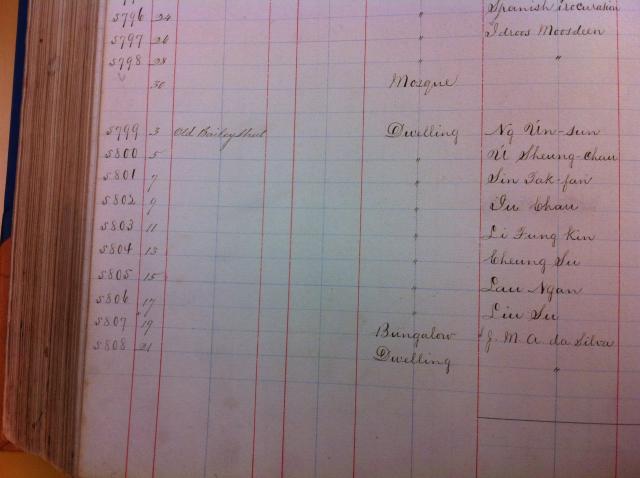 5796 24 " Spanish Procuration
5797 26 " Idroos Moosdeen
5798 28 " "
30 Mosque
5799 3 Old Bailey Street Dwelling Ng Ún-sun
5800 5 " Ú Sheung-chau
5801 7 " Sin Tak-fan
5802 9 " Iu Chau
5803 11 " Li Fung Kin
5804 13 " Cheung Su
5805 15 " Lau Ngan
5806 17 " Liu Su
5807 19 Bungalow J. M. A. da Silva
5808 21 Dwelling "